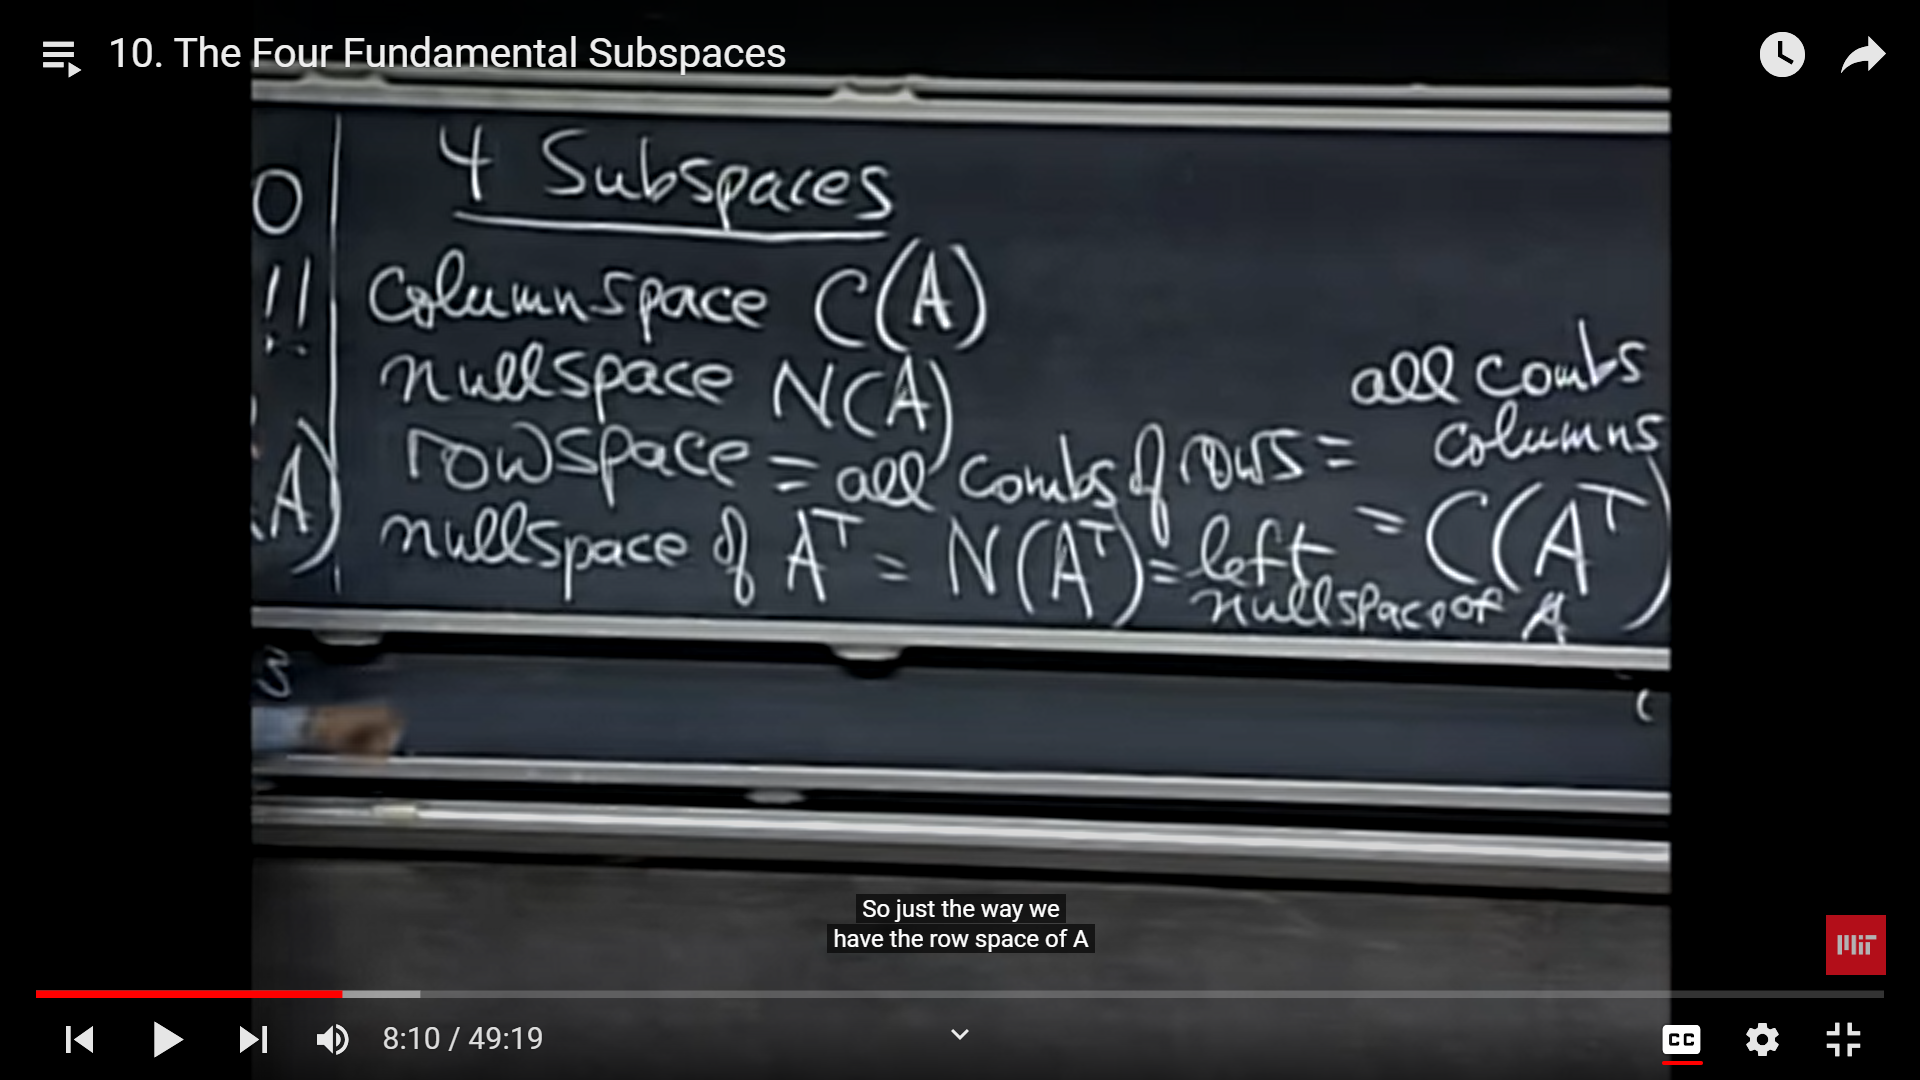 10. The Four Fundamental Subspaces
4 Subspaces
0
!!
A)
columnspace C(A)
nullspace N(A)
rowspace = all combs of rows = all combs columns
= C(Aᵀ)
nullspace of Aᵀ = N(Aᵀ) = left nullspace of A
3
(
So just the way we
have the row space of A
MIT
8:10 / 49:19
CC